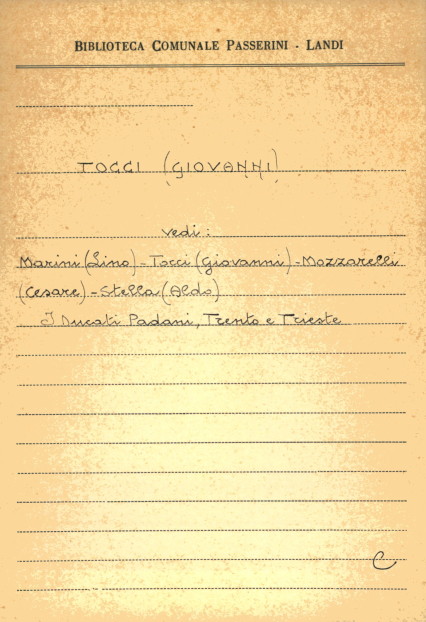 BIBLIOTECA COMUNALE PASSERINI - LANDI
TOCCI (GIOVANNI)
vedi:
Marini (Lino) - Tocci (Giovanni) - Mozzarelli
(Cesare) - Stella (Aldo)
I Ducati Padani, Trento e Trieste
C